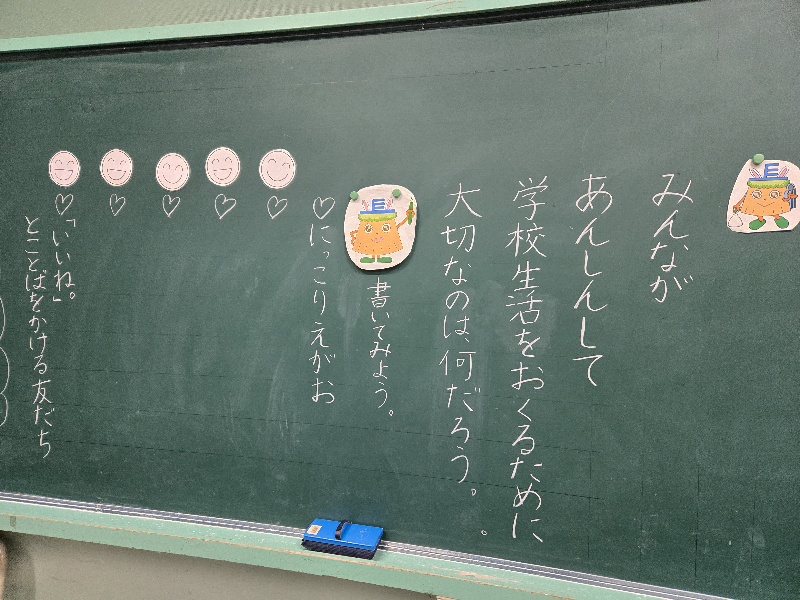 みんなが
あんしんして
学校生活をおくるために
大切なのは、何だろう。
書いてみよう。
♡にっこりえがお
♡
♡
♡
♡
♡「いいね。」
とことばをかける友だち